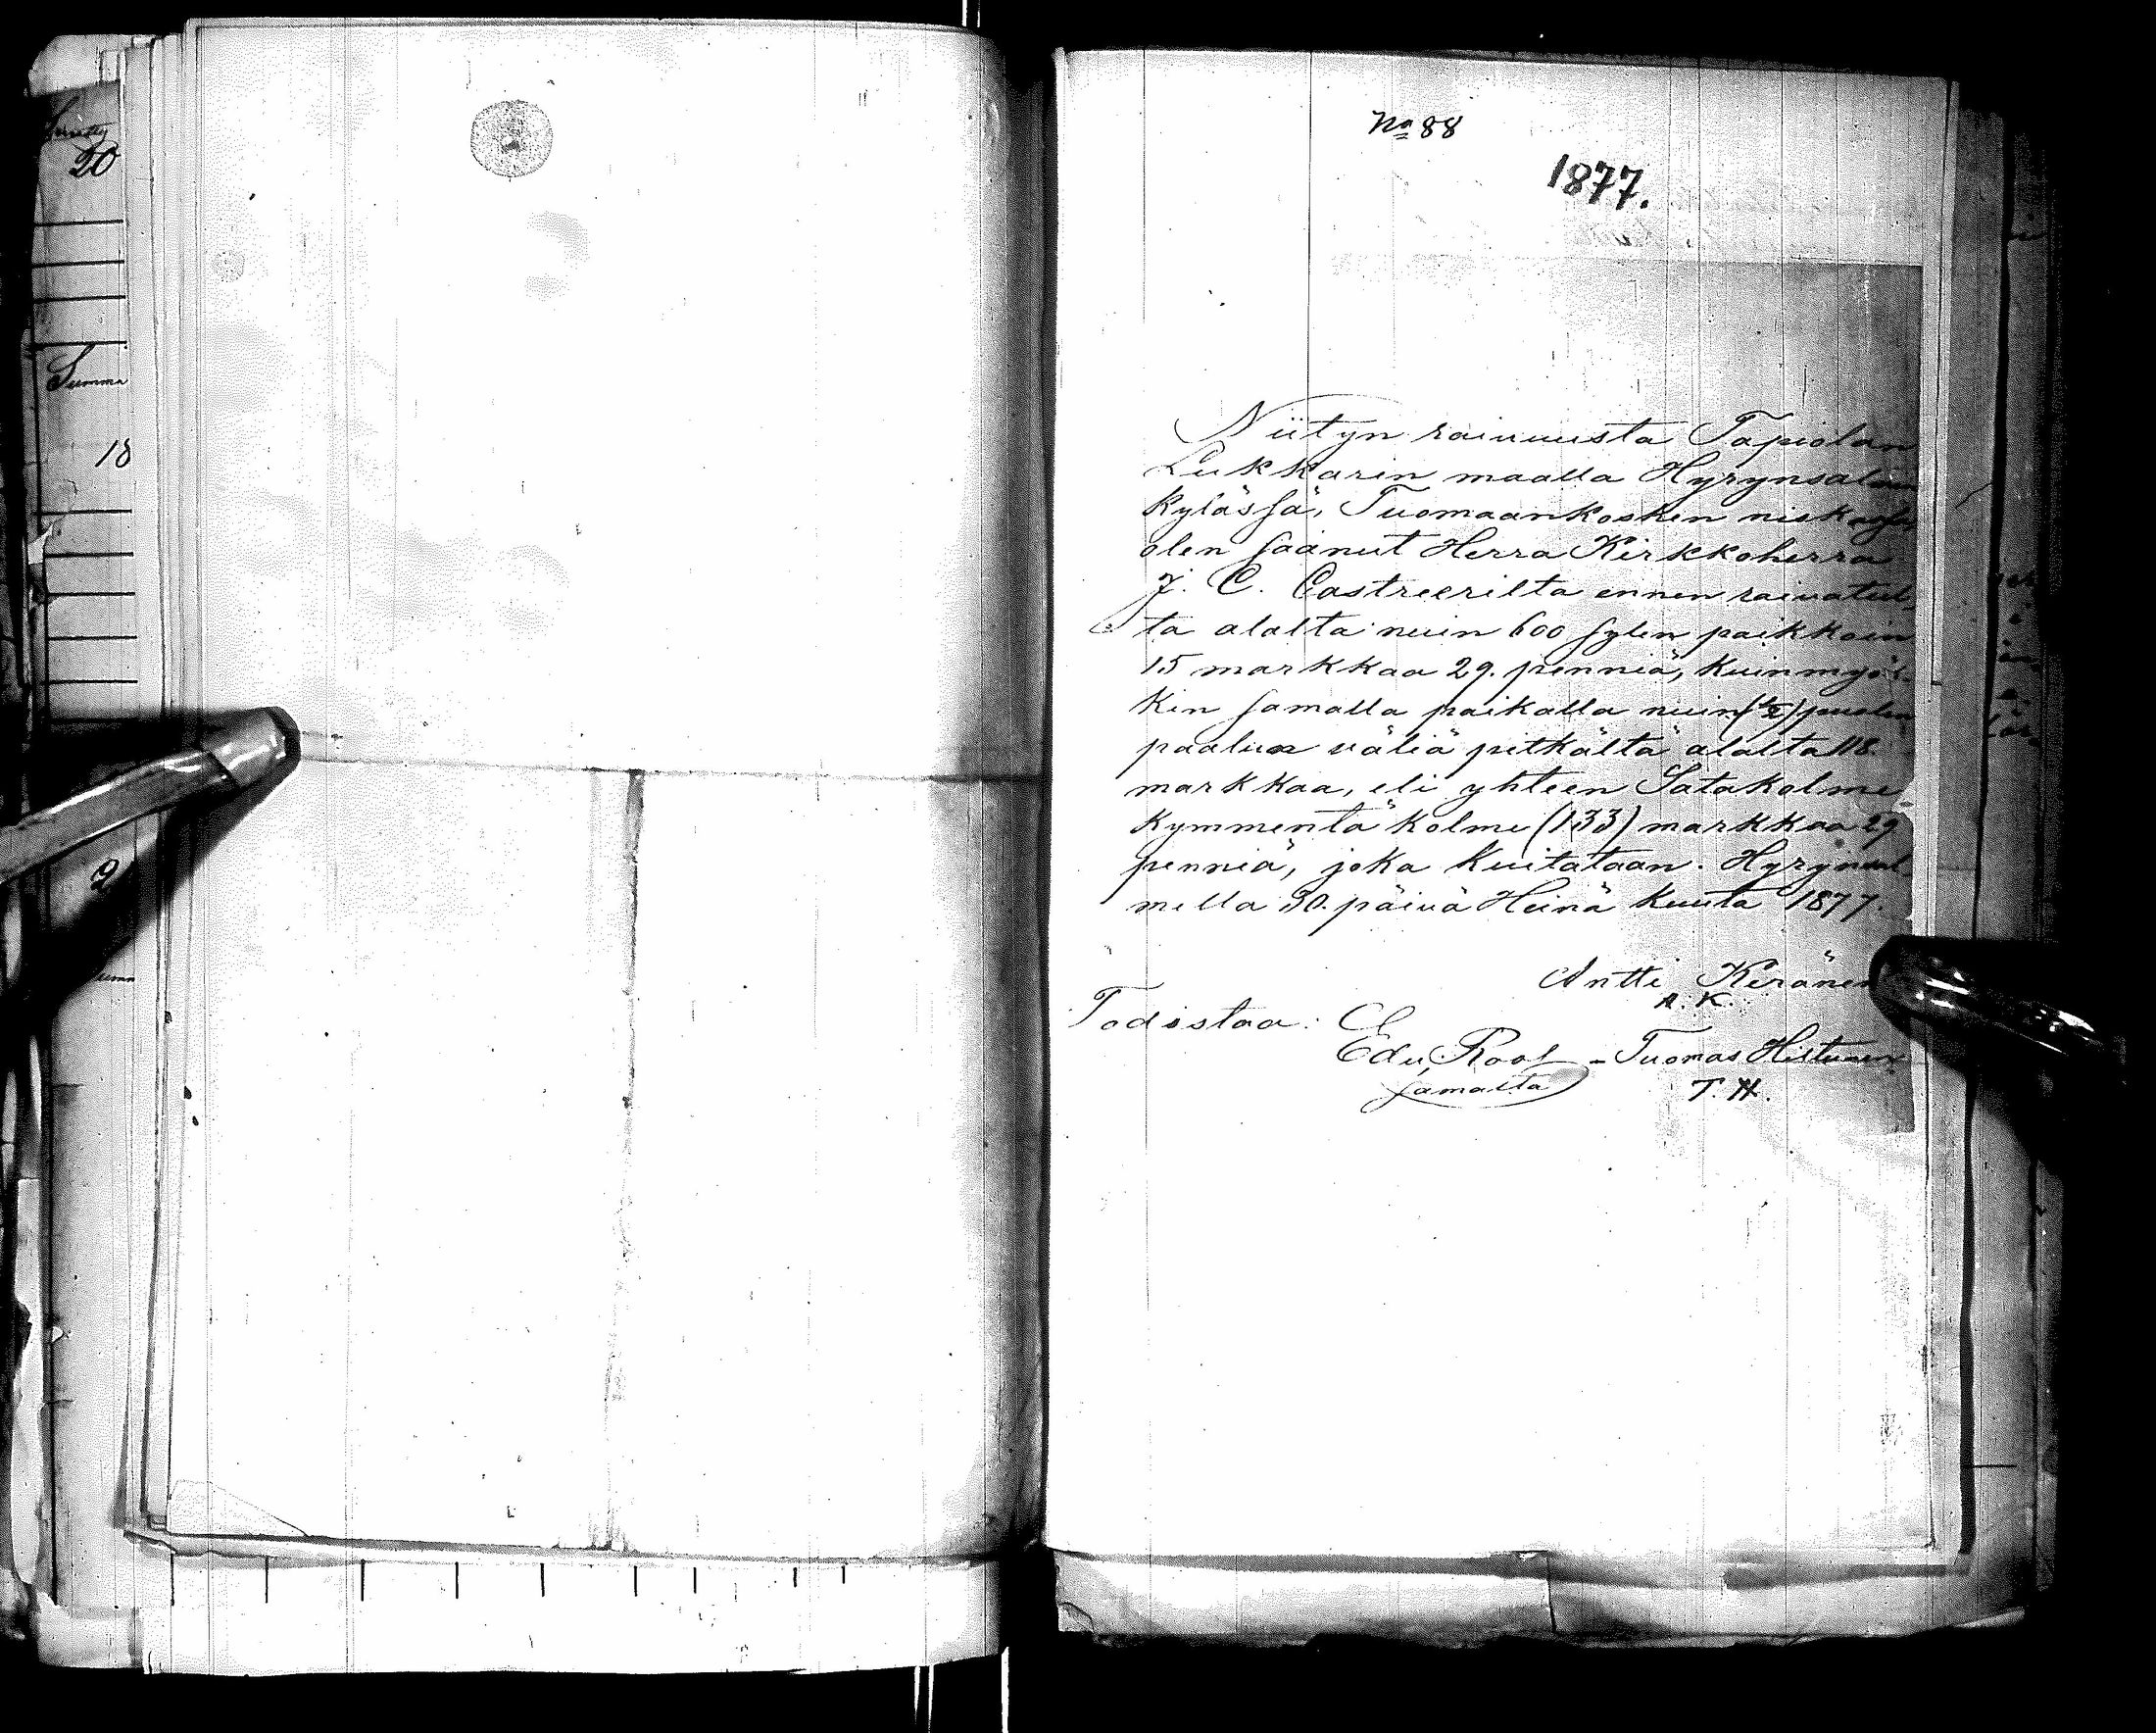 Summa
20
Summa
18
2
No 88
1877.
Niityn raivuusta Tapiolan
Lukkarin maalla Hyrynsalmen
kylässä, Tuomaankosken niskassa,
olen saanut Herra Kirkkoherra
J. C. Castreerilta ennen raivatul,
ta alalta nuin 600 sylen paikkoin
15 markkaa 29. penniä, kuin myös-
kin samalla paikalla nuin (1/2) puolen
paalun väliä pitkältä alalta 118.
markkaa, eli yhteen Satakolme
kymmentä kolme (133) markkaa 29
penniä, joka kuitataan. Hyrynsal-
mella 30. päivä Heinä kuuta 1877.
Antti Keränen
A. K.
Todistaa:
Edu, Roos - Tuomas
samalta
T. H.